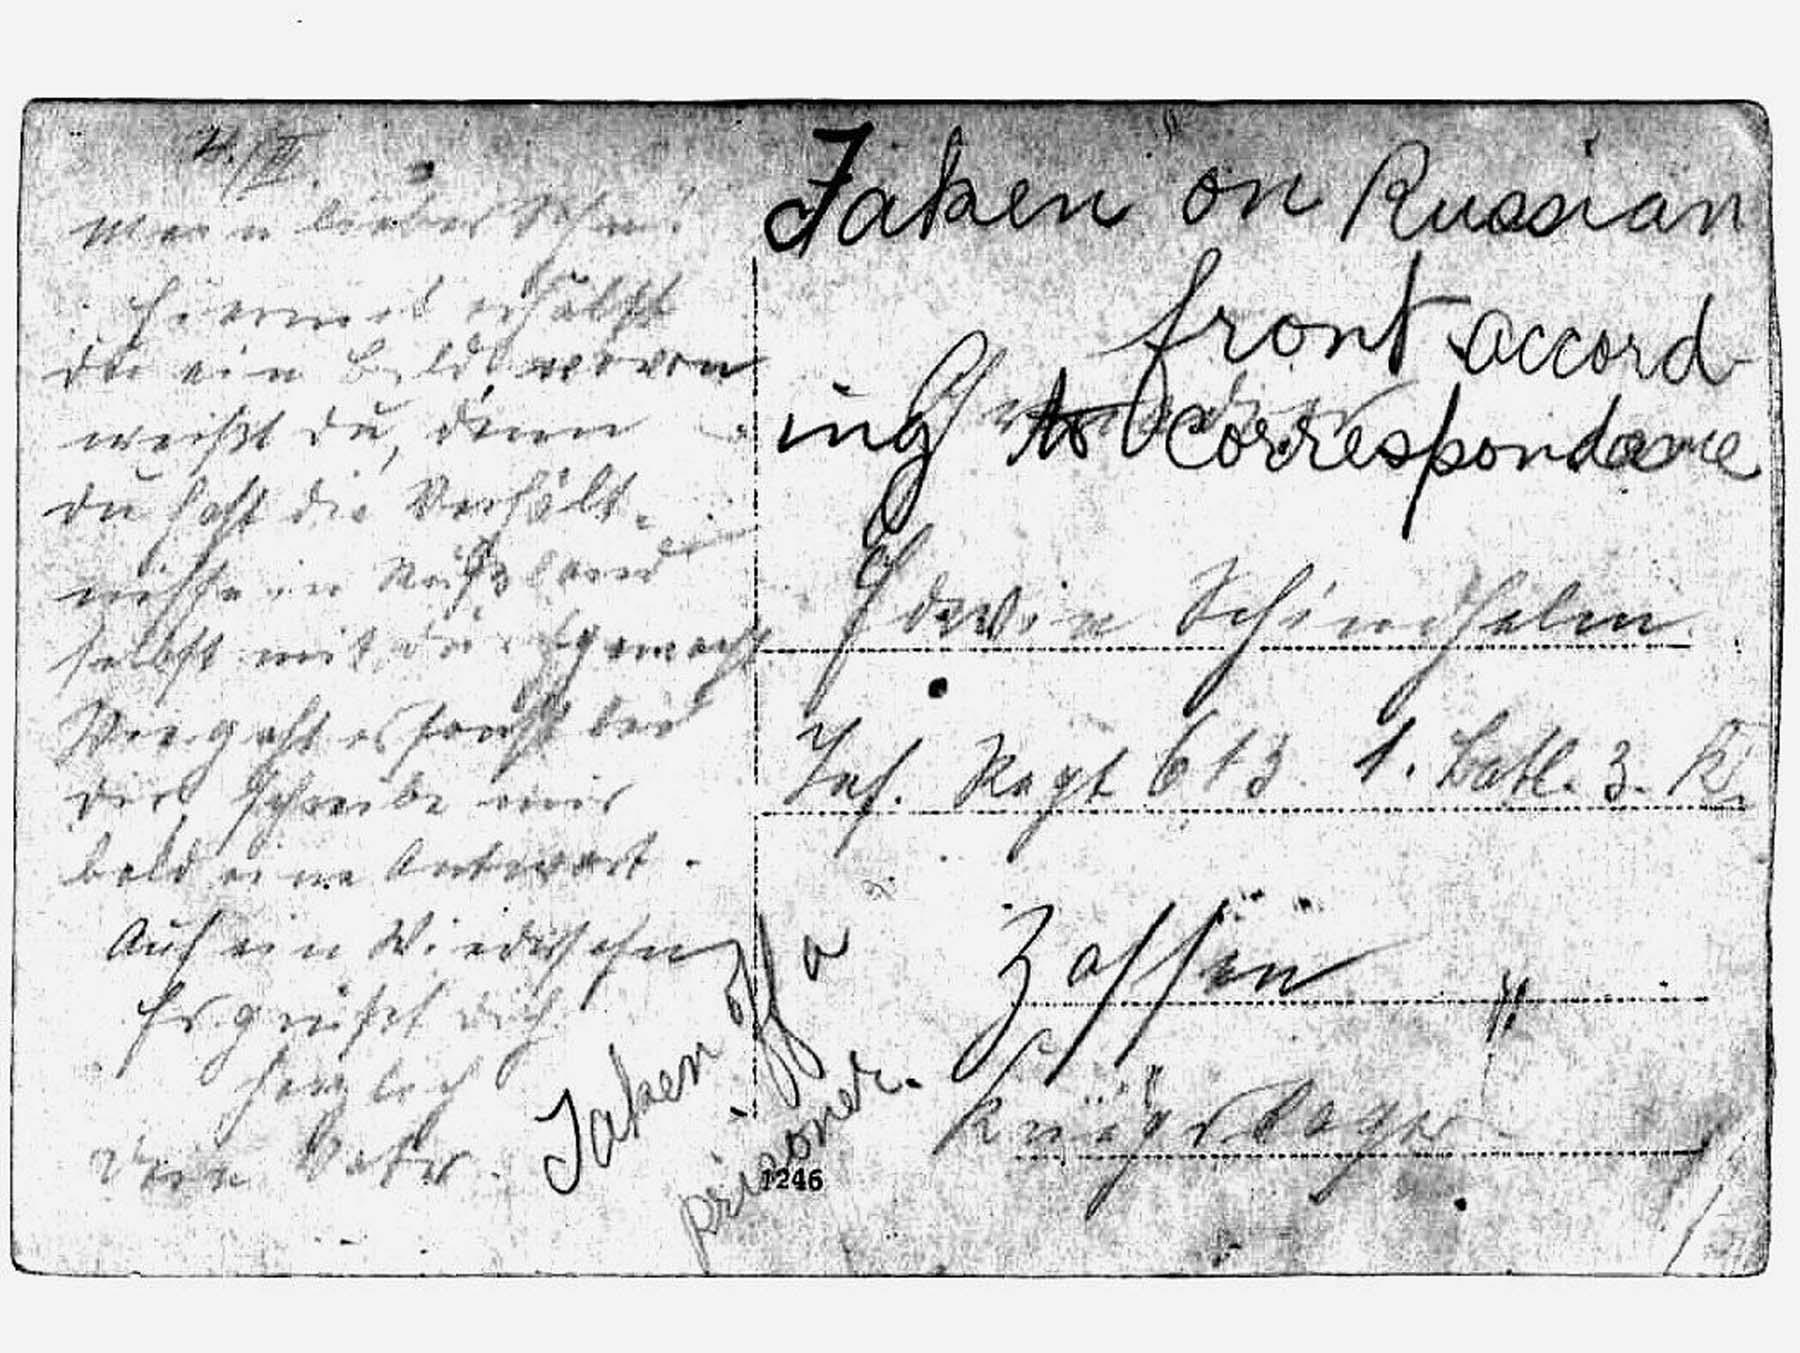 2./II.
Mein lieber Sohn!
Hiermit erhältst
du ein Bild wovon
weißt du, denn
du hast die Verhält-
nisse in Rußland
selbst mit durchgemacht
Wie geht es sonst bei
dir schreibe mir
bald eine Antwort.
Auf ein Wiedersehn
Es grüßt dich
herzlich
dein Vater.
Taken on Russian
front accord-
ing to correspondance
Edwin Schindhelm
Inf. Regt 613. 1. Batl. 3. K.
Zossen
Taken off a
prisoner.
1246